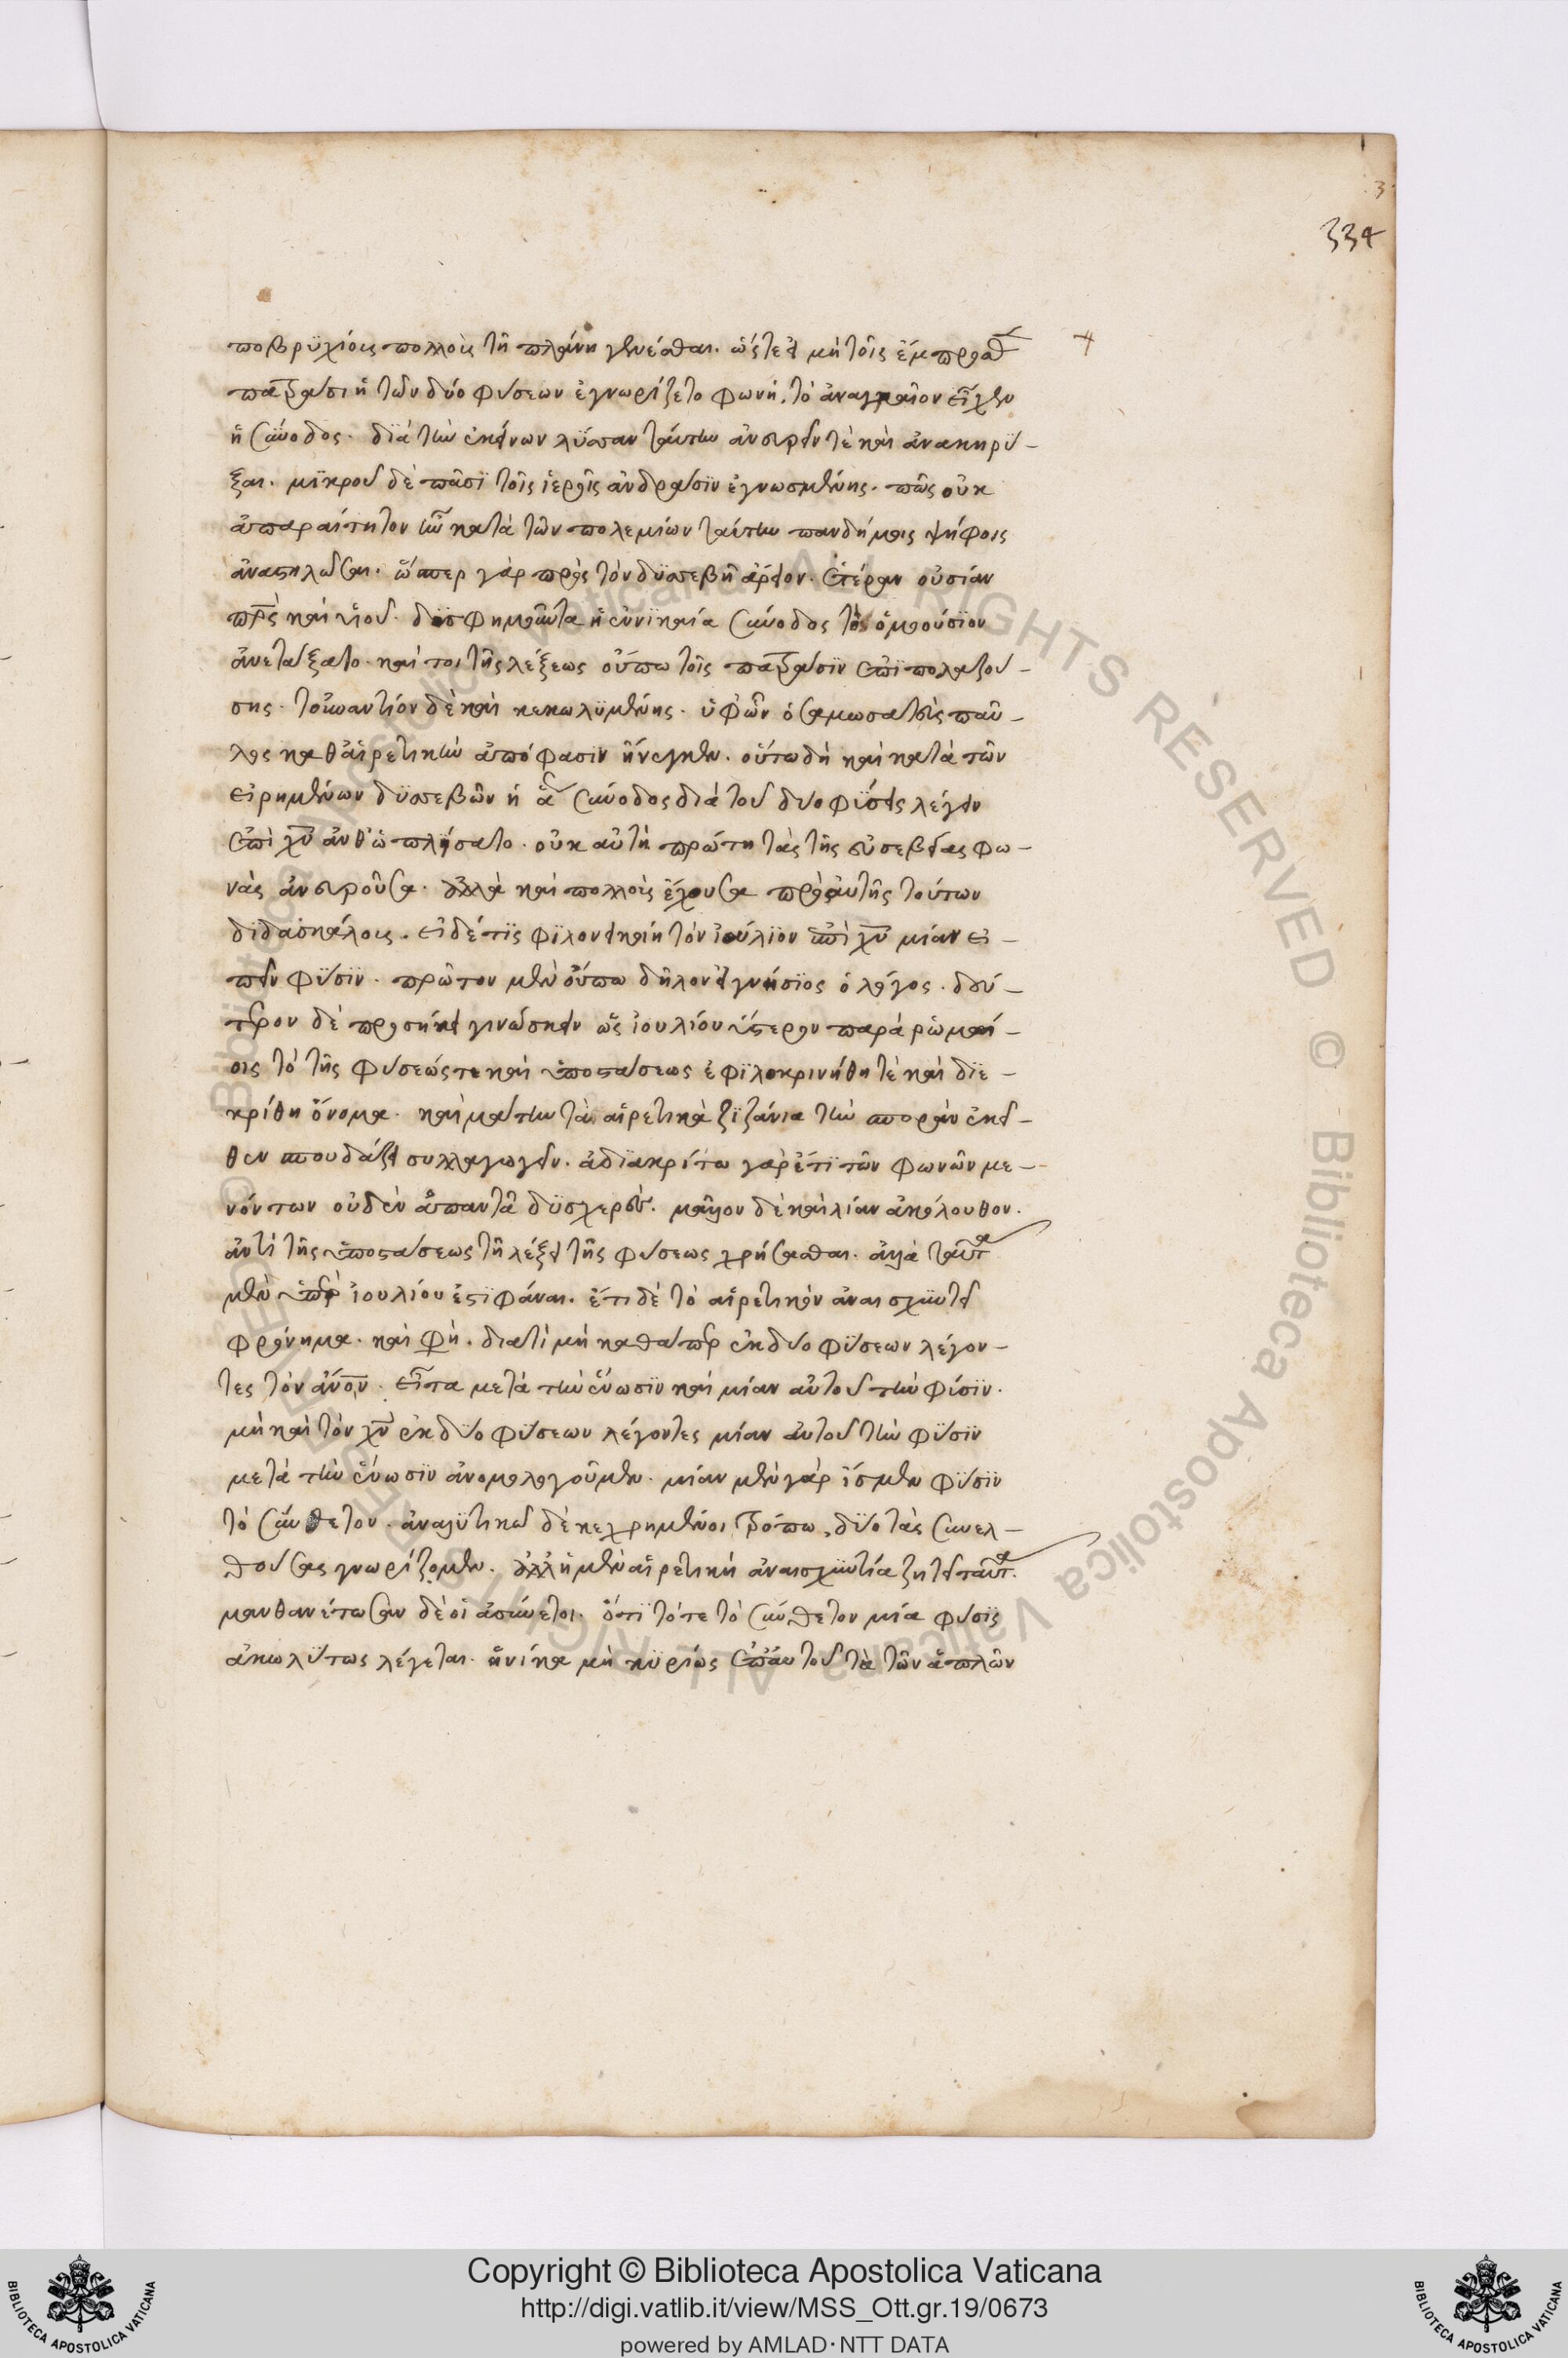 334
ποβρϋχίοις πολλοὺς τῇ πλάνῃ γενέσθαι. ὥστε εἰ μὴ τοῖς ἔμπροσθ
πατράσιν ἡ τῶν δύο φύσεων ἐγνωρίζετο φωνή, τὸ ἀναγκαῖον εἶχεν
ἡ σύνοδος. διὰ τὴν ἐκείνων λύσσαν ταύτην ἀνευρεῖν τὲ καὶ ἀνακηρύ-
ξαι. μϊκροῦ δὲ πᾶσϊ τοῖς ἱεροῖς ἀνδράσϊν ἐγνωσμένης. πῶς οὐκ
ἀπαραίτητον ἦν κατὰ τῶν πολεμίων ταύτην πανδήμοις ψήφοις
ἀναστηλῶσαι. ὥσπερ γὰρ πρὸς τὸν δϋσσεβῆ ἄρειον. ἑτέραν οὐσίαν
πρς καὶ υἱοῦ. δυσφημοῦντα ἡ ἐν νικαία σύνοδος τὸ ὁμοούσϊον
ἀνετάξατο. καί τοι τῆς λέξεως οὔπω τοῖς πατράσϊν ἐπϊπολαζού-
σης. τοὐναντίον δὲ καὶ κεκωλϋμένης. ὑφ' ὧν ὁ σαμωσατεὺς παῦ-
λος καθαιρετικὴν ἀπόφασιν ἤνεγκεν. οὕτω δὴ καὶ κατὰ τῶν
εἰρημένων δϋσσεβῶν ἡ δ σύνοδος διὰ τοῦ δύο φύσεις λέγειν
ἐπὶ χυ ἀνθωπλίσατο. οὐκ αὐτὴ πρώτη τὰς τῆς εὐσεβείας φω-
νὰς ἀνευροῦσα. ἀλλὰ καὶ πολλοὺς ἔχουσα πρὸ αὐτῆς τούτων
δϊδασκάλους. εἰ δέ τϊς φϊλονεικοίη τὸν ἰούλϊον ἐπὶ χυ μίαν εἰ-
πεῖν φύσϊν. πρῶτον μὲν οὔπω δῆλον εἰ γνήσϊος ὁ λόγος. δεύ-
τερον δὲ προσήκει γινώσκειν ὡς ἰουλίου ὕστερον παρὰ ῥωμαί-
οις τὸ τῆς φύσεώς τε καὶ ὑποστάσεως ἐφϊλοκρινήθη τὲ καὶ δϊε-
κρίθη ὄνομα. καὶ μάτην τὰ αἱρετικὰ ζϊζάνια τὴν σπορὰν ἐκεῖ-
θεν σπουδάζει συλλαγωγεῖν. ἀδϊακρίτω γὰρ ἔτϊ τῶν φωνῶν με-
νόντων οὐδὲν ἀπαντᾶ δϋσχερές. μᾶλλον δὲ καὶ λίαν ἀκόλουθον.
ἀντὶ τῆς ὑποστάσεως τῇ λέξει τῆς φύσεως χρήσασθαι. ἀλλὰ ταῦτα
μὲν ὑπὲρ ἰουλίου ἐστϊ φάναι. ἔτι δὲ τὸ αἱρετικὸν ἀναισχυντεῖ
φρόνημα. καὶ φη. διατὶ μὴ καθάπερ ἐκ δύο φύσεων λέγον-
τες τὸν ἄνον. εἶτα μετὰ τὴν ἕνωσϊν καὶ μίαν αὐτοῦ τὴν φύσϊν.
μὴ καὶ τὸν χν ἐκ δύο φύσεων λέγοντες μίαν αὐτοῦ τὴν φύσϊν
μετὰ τὴν ἕνωσϊν ἀνομολογοῦμεν. μίαν μὲν γὰρ ἴσμεν φύσϊν
τὸ σύνθετον. ἀναλϋτικῶ δὲ κεχρημένοι τρόπω, δύο τὰς συνελ-
θούσας γνωρίζομεν. ἀλλ' ἡ μὲν αἱρετικὴ ἀναισχυντία ζητεῖ ταῦτα.
μανθανέτωσαν δὲ οἱ ἀσύνετοι. ὅτϊ τότε τὸ σύνθετον μία φύσϊς
ἀκωλύτως λέγεται. ἡνίκα μὴ κϋρίως ἐπ' αὐτοῦ τὰ τῶν ἁπλῶν
Copyright © Biblioteca Apostolica Vaticana
http://digi.vatlib.it/view/MSS_Ott.gr.19/0673
powered by AMLAD·NTT DATA